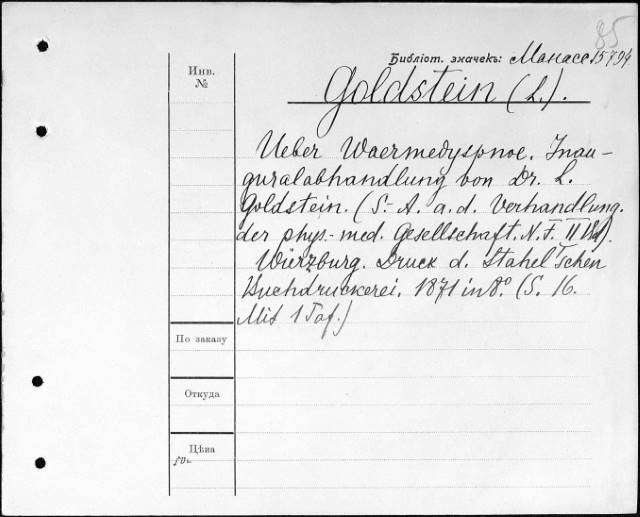 85
Библіот. значекъ: Манассе 15794
Инв.
№
Goldstein (L.).
Ueber Waermedyspnoe. Inau-
guralabhandlung von Dr. L.
Goldstein. (S.-A. a. d. Verhandlung.
der phys.-med. Gesellschaft. N. F. II Bd).
Würzburg. Druck d. Stahel'schen
Buchdruckerei. 1871 in 8° (S. 16.
Mit 1 Taf.)
По заказу
Откуда
Цѣна